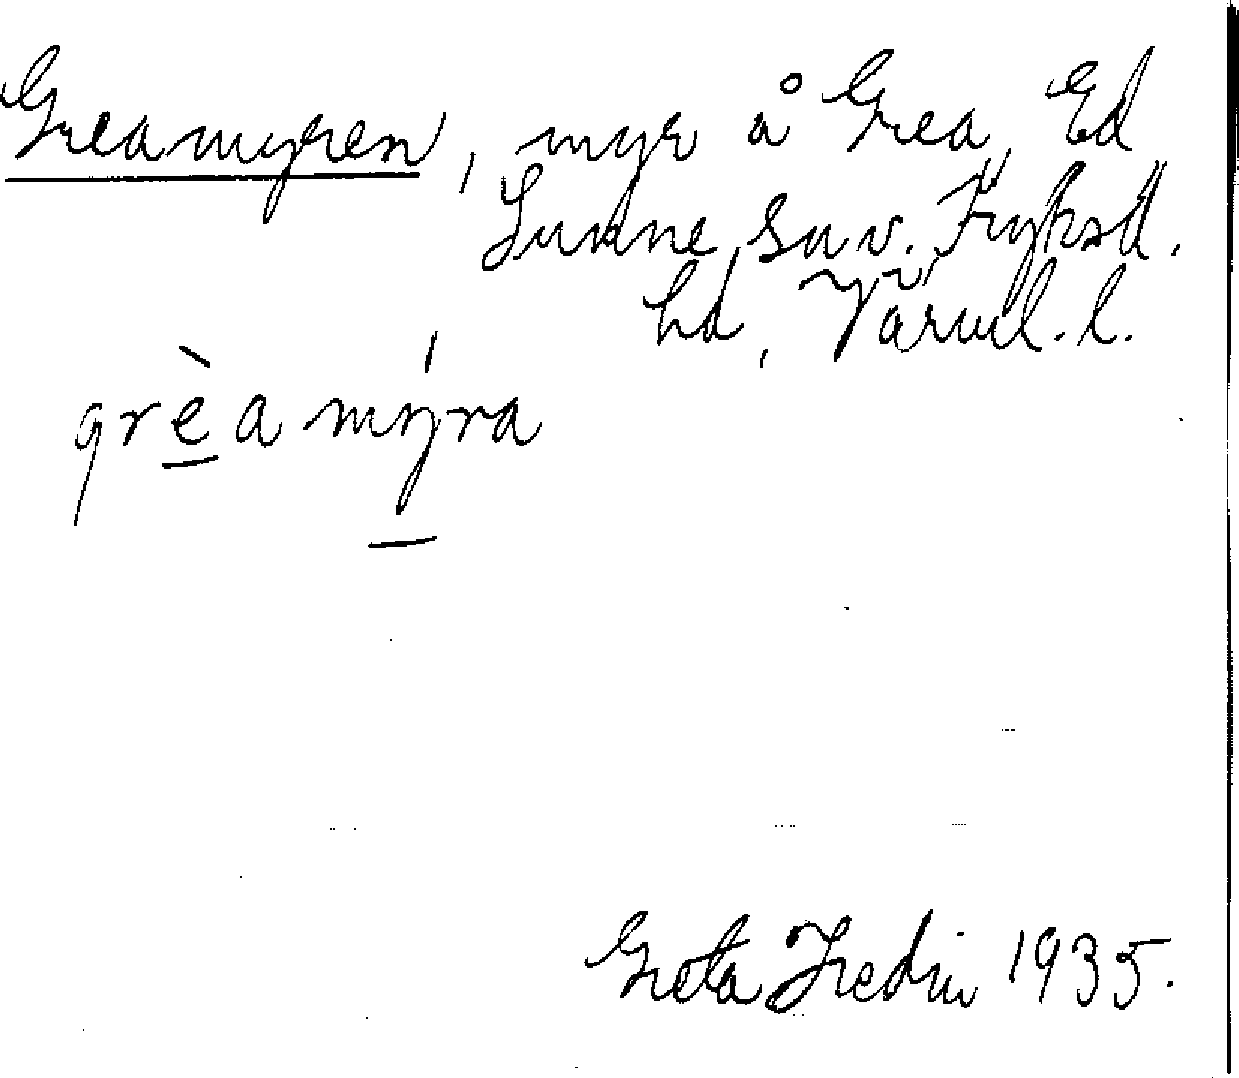 Greamyren, myr å Grea, Ed
Sunne sn v. Fryksd.
hd, Värml. l.
grèamýra
Greta Hedin 1935.